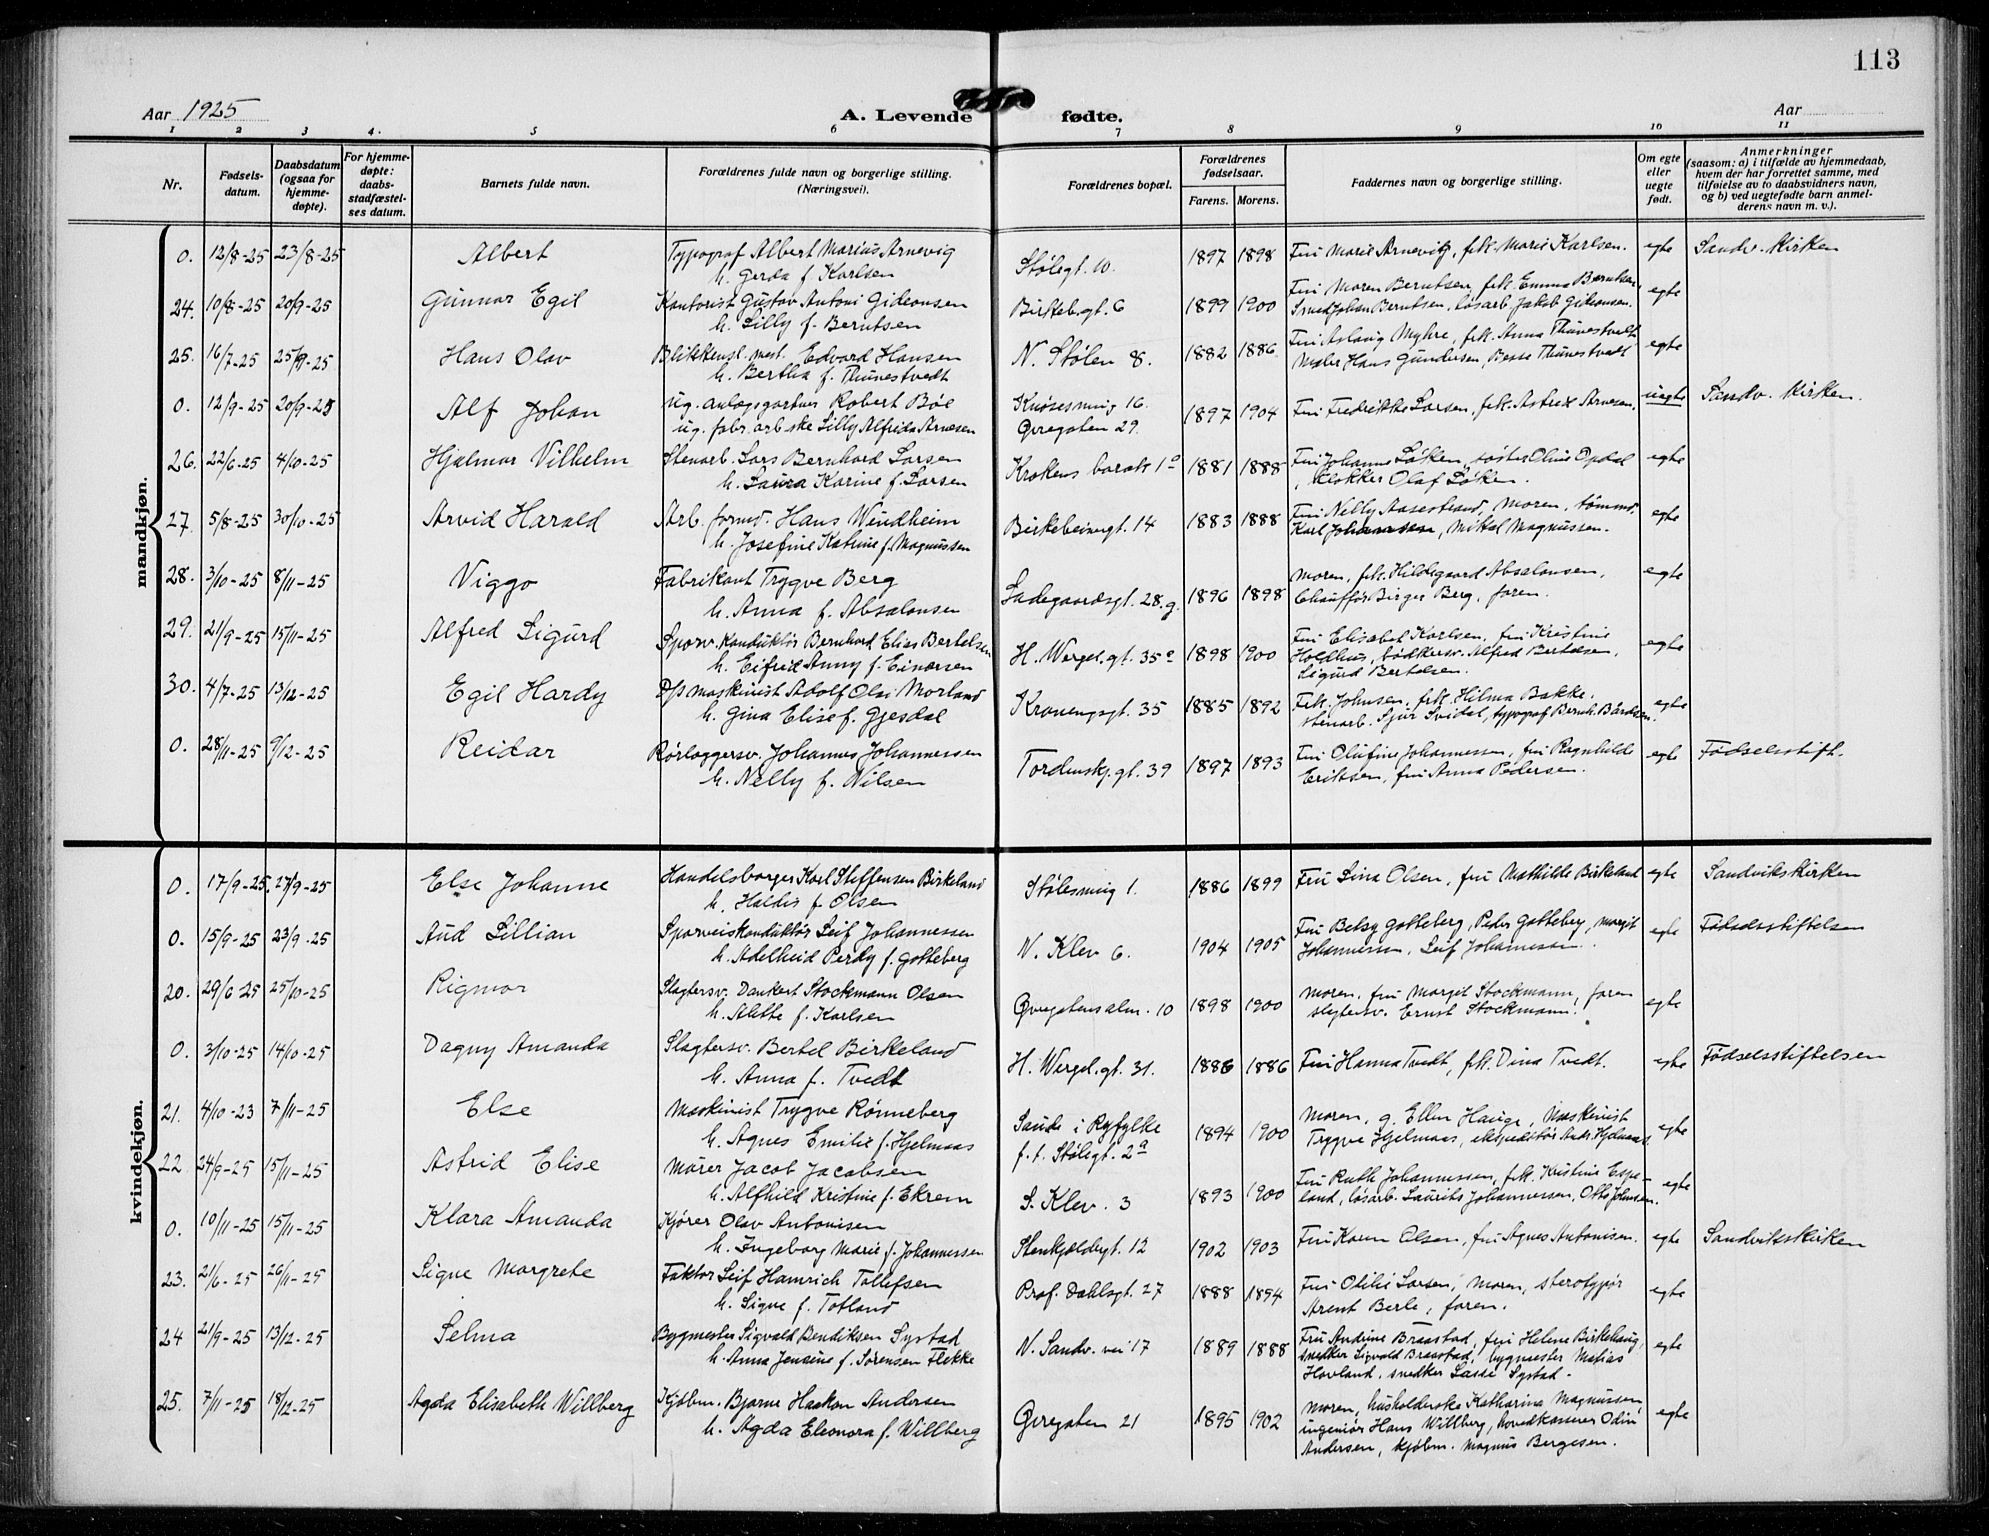 113
Aar 1925
A. Levende fødte.
Aar
1 2 3 4. 5 6 7 8 9 10 11
Nr.
Fødsels-
datum.
Daabsdatum
(ogsaa for
hjemme-
døpte).
For hjemme-
døpte:
daabs-
stadfæstel-
ses datum.
Barnets fulde navn.
Forældrenes fulde navn og borgerlige stilling.
(Næringsvei).
Forældrenes bopæl.
Forældrenes
fødselsaar.
Farens. Morens.
Faddernes navn og borgerlige stilling.
Om egte
eller
uegte
født.
Anmerkninger
(saasom: a) i tilfælde av hjemmedaab,
hvem der har forrettet samme, med
tilføielse av to daabsvidners navn,
og b) ved uegtefødte barn anmel-
derens navn m. v.).
mandkjøn.
0. 12/8-25 23/8-25 Albert Typograf Albert Marius Arnevig
h. Gerda f. Karlsen
Stølegt. 10. 1897 1898 Fru Marie Arnevig, frk. Marie Karlsen. egte Sandv. Kirken
24. 10/8-25 20/9-25 Gunnar Egil Kontorist Gustav Antoni Gideonsen
h. Lilly f. Berntsen
Birkeb.gt. 6 1899 1900 Fru Maren Berntsen, frk. Emma Berntsen,
Smed Johan Berntsen, løsarb. Jakob Gideonsen. egte
25. 16/7-25 25/9-25 Hans Olav Blikkensl. mest. Edvard Hansen
h. Bertha f. Thunestvedt
N. Stølen 8. 1882 1886 Fru Aslaug Myhre, frk. Anna Thunestvedt
Maler Hans Gundersen, Basse Thunestvedt egte
0. 12/9-25 20/9-25 Alf Johan ug. anlægsgartner Robert Bøe
ug. fabr. arb.ske Lilly Alfrida Arnesen
Knøsesmug 16.
Øvregaten 29. 1897 1904 Fru Fredrikke Larsen, frk. Astrid Arnesen. uegte Sandv. Kirken.
26. 22/6-25 4/10-25 Hjalmar Vilhelm Stenarb. Lars Bernhard Larsen
h. Laura Karine f. Larsen
Krokens barak 1a 1881 1888 Fru Johanne Løken, søster Oline Opdal
, klokker Olaf Løken. egte
27. 5/8-25 30/10-25 Arvid Harald Arb. formd. Hans Windheim
h. Josefine Katrine f. Magnussen
Birkebeinergt. 14 1883 1888 Fru Nelly Aasestrand, moren, tømmd.
Karl Johannesen, Mikal Magnussen. egte
28. 3/10-25 8/11-25 Viggo Fabrikant Trygve Berg
h. Anna f. Absalonsen
Ladegaardsgt. 28.g. 1896 1898 Moren, frk. Hildegaard Absalonsen,
Chauffør Birger Berg, faren. egte
29. 21/9-25 15/11-25 Alfred Sigurd Sporv. Konduktør Bernhard Elias Bertelsen
h. Eifrid Anny f. Einarsen
H. Wergel.gt. 35a 1898 1900 Fru Elisabet Karlsen, fru Kristine
Holdhus, bødkersv. Alfred Bertelsen,
Sigurd Bertelsen. egte
30. 4/7-25 13/12-25 Egil Hardy D/s maskinist Adolf Olai Morland
h. Gina Elise f. Gjesdal
Kroneng.gt. 35 1885 1892 Frk. Johnsen, frk. Hilma Bakke.
stenarb. Sjur Svidal, typograf Bernh. Bårdsen. egte
0. 28/11-25 9/12-25 Reidar Rørlæggersv. Johannes Johannessen
h. Nelly f. Nilsen
Tordenskj.gt. 39 1897 1893 Fru Olufine Johannessen, fru Ragnhilde
Eriksen, fru Anna Pedersen. egte Fødselsstift.
kvindekjøn.
0. 17/9-25. 27/9-25 Else Johanne Handelsborger Karl Steffensen Birkeland
h. Haldis f. Olsen
Stølesmug 1. 1886 1899 Fru Lina Olsen, fru Mathilde Birkeland egte Sandvikskirken
0. 15/9-25 23/9-25 Aud Lillian Sporveiskonduktør Leif Johannessen
h. Adelheid Perdy f. Gotteberg
N. Klev 6. 1904 1905 Fru Betsy Gotteberg, Peder Gotteberg, Margit
Johannessen, Leif Johannessen. egte Fødselsstiftelsen
20. 29/6-25 25/10-25 Rigmor Slagtersv. Dankert Stockmann Olsen
h. Alette f. Karlsen
Øvregatensalm. 10 1898 1900 Moren, fru Margit Stockmann, faren
slagtersv. Ernst Stockmann. egte
0. 3/10-25 14/10-25 Dagny Amanda Slagtersv. Bertel Birkeland
h. Anna f. Tvedt
H. Wergel.gt. 31. 1886 1886 Fru Hanna Tvedt, frk. Dina Tvedt. egte Fødselsstiftelsen
21. 4/10-23 7/11-25 Else Maskinist Trygve Rønneberg
h. Agnes Emilie f. Hjelmaas
Saude i Ryfylke
f.t. Stølegt. 2a 1894 1900 Moren, g. Ellen Hauge, Maskinist
Trygve Hjelmaas, ekspeditør Andr. Hjelmaas. egte
22. 24/9-25 15/11-25 Astrid Elise Murer Jacob Jacobsen
h. Alfhild Kristine f. Ekrem
S. Klev. 3 1893 1900 Fru Ruth Johannessen, frk. Kristine Espe-
land, løsarb. Laurits Johannessen, Otto Johnsen. egte
0. 10/11-25 15/11-25 Klara Amanda Kjører Olav Antonisen
h. Ingeborg Marie f. Johannessen
Stenkjeldergt. 12 1902 1903 Fru Karen Olsen, fru Agnes Antonisen. egte Sandvikskirken
23. 21/6-25 26/11-25 Signe Margrete Faktor Leif Hamrich Tollefsen
h. Signe f. Totland
Prof. Dahlsgt. 27 1888 1894 Fru Otilie Larsen, moren, sterotypør
Arent Berle, faren. egte
24 21/9-25 13/12-25 Selma Bygmester Sigvald Bendiksen Systad
h. Anna Jensine f. Sørensen Flekke
N. Sandv. vei 17 1889 1888 Fru Andrine Braastad, fru Helene Birkehaug,
snedker Sigvald Braastad, bygmester Matias
Hovland, snedker Lasse Systad. egte
25. 7/11-25 18/12-25 Agda Elisabeth Willberg Kjøbm. Bjarne Haakon Andersen
h. Agda Eleonora f. Willberg
Øvregaten 21 1895 1902 Moren, husholderske Katharina Magnussen,
ingeniør Hans Willberg, hovedkasserer Odin
Andersen, kjøbm. Magnus Bergesen. egte